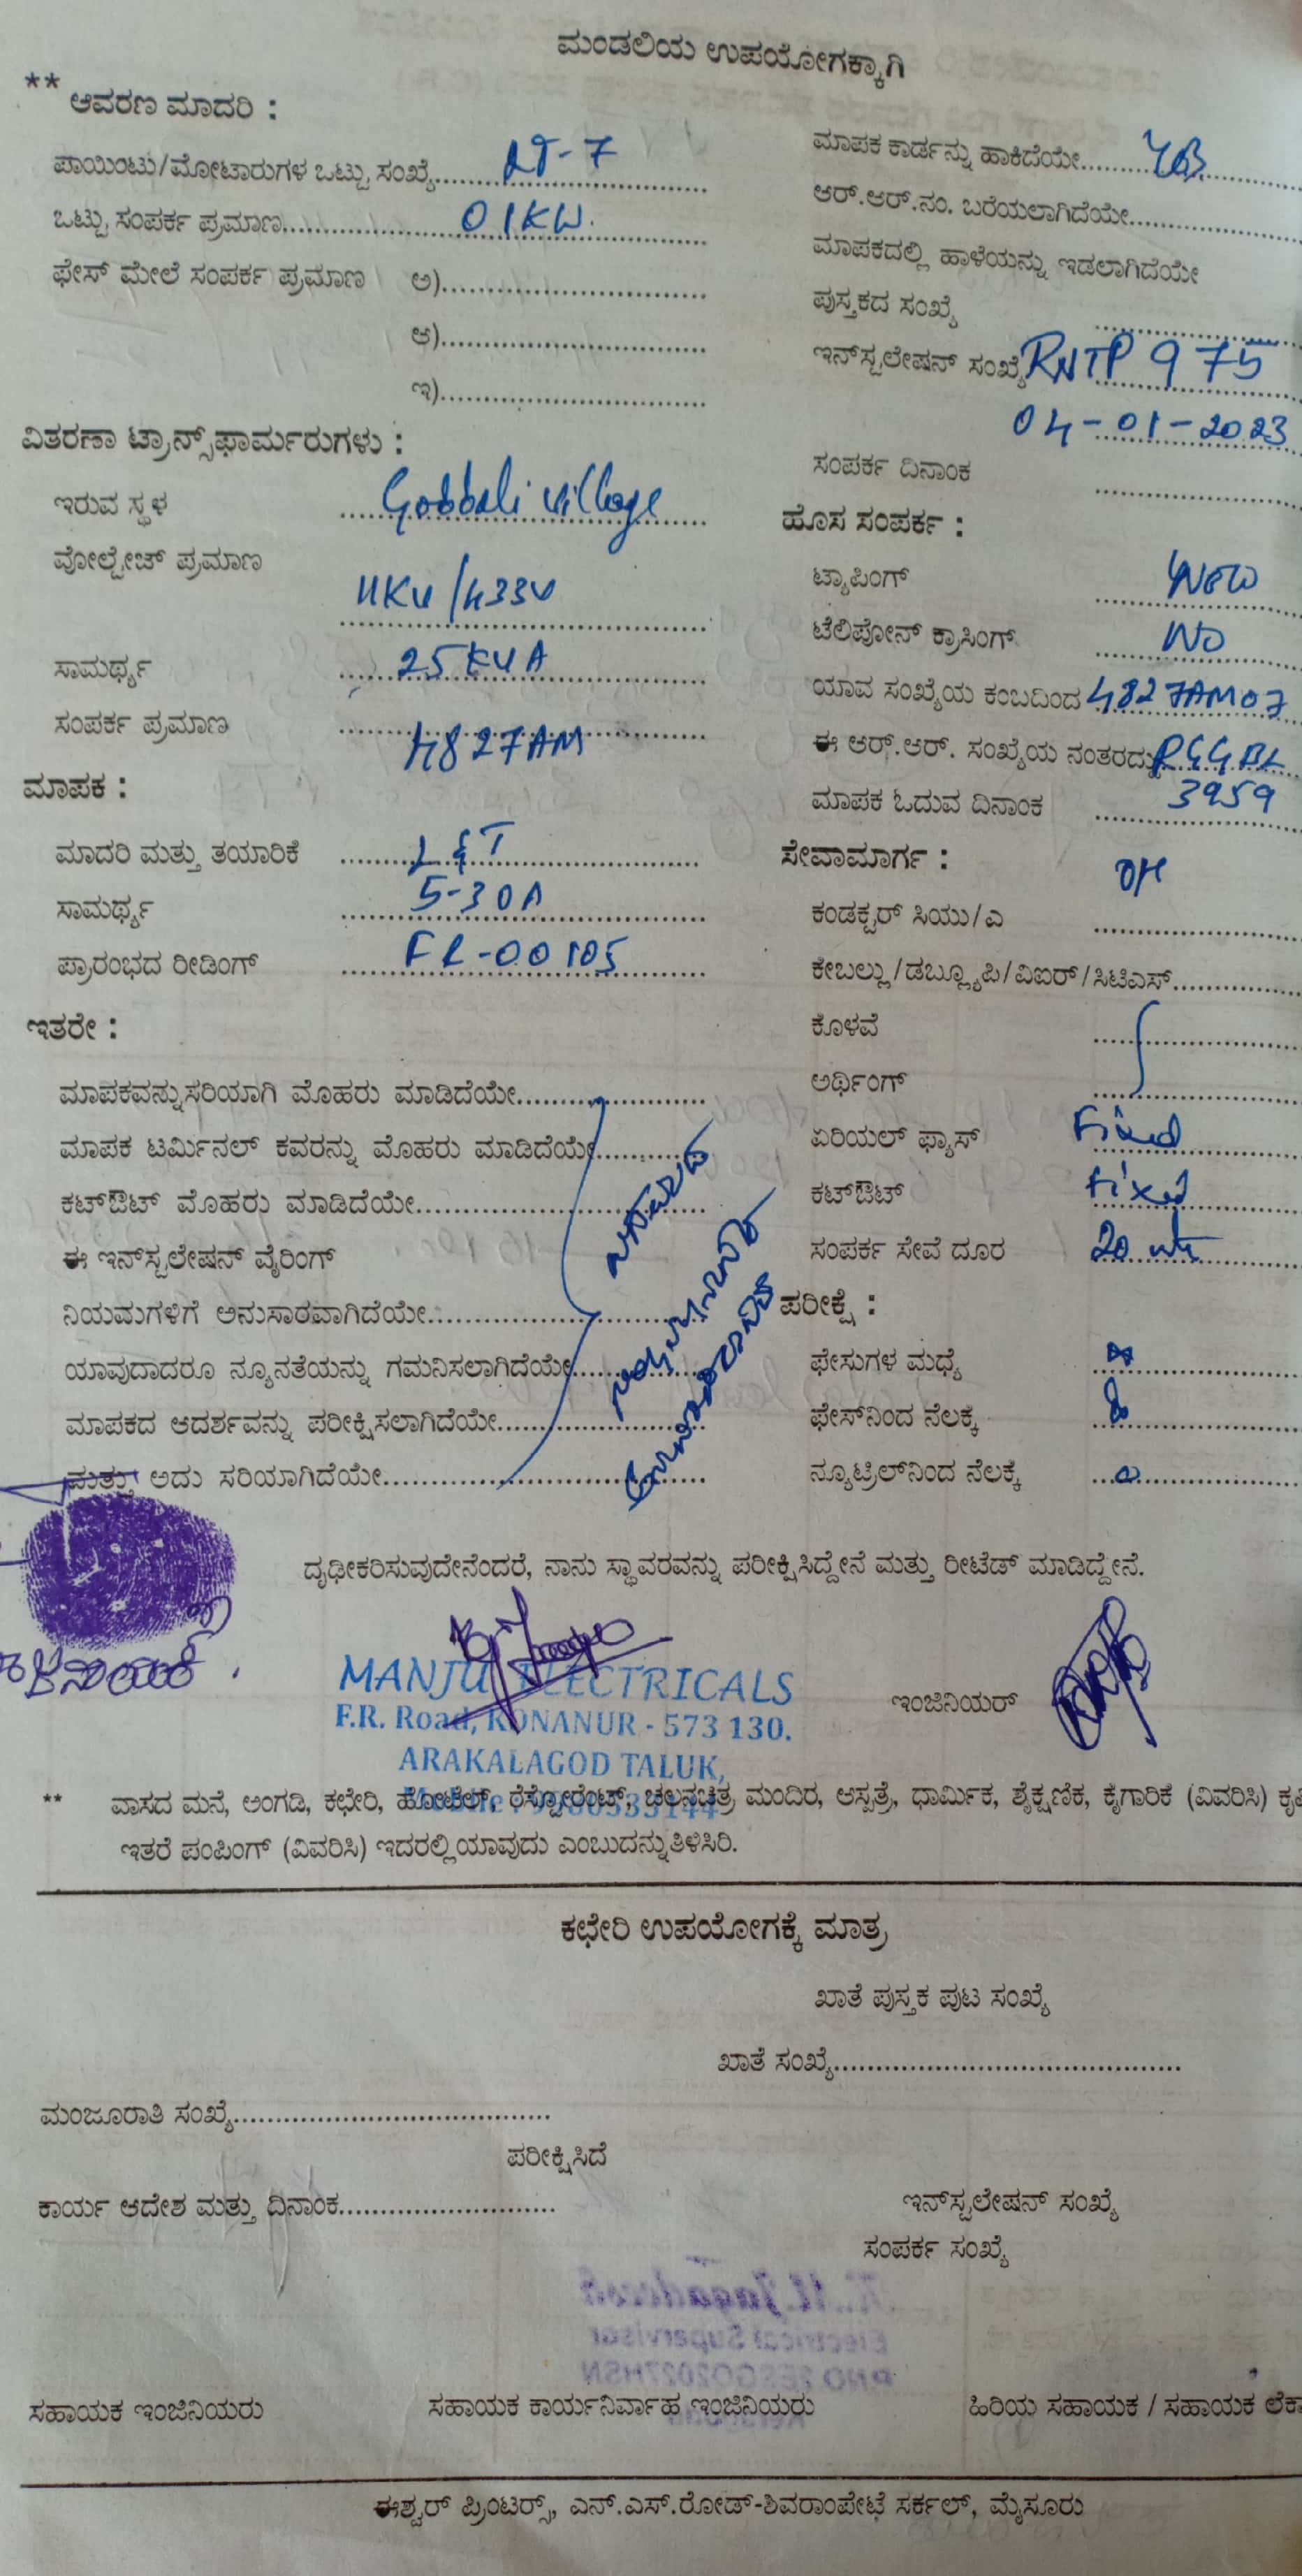 ಮಂಡಲಿಯ ಉಪಯೋಗಕ್ಕಾಗಿ
** ಆವರಣ ಮಾದರಿ :
ಪಾಯಿಂಟು/ಮೋಟಾರುಗಳ ಒಟ್ಟು ಸಂಖ್ಯೆ........ LT-7
ಒಟ್ಟು ಸಂಪರ್ಕ ಪ್ರಮಾಣ........ 01KW.
ಫೇಸ್ ಮೇಲೆ ಸಂಪರ್ಕ ಪ್ರಮಾಣ ಅ)........
ಆ)........
ಇ)........
ವಿತರಣಾ ಟ್ರಾನ್ಸ್‌ಫಾರ್ಮರುಗಳು :
ಇರುವ ಸ್ಥಳ ........ Gobbali village
ವೋಲ್ಟೇಜ್ ಪ್ರಮಾಣ 11KV/433V
ಸಾಮರ್ಥ್ಯ ........ 25KVA
ಸಂಪರ್ಕ ಪ್ರಮಾಣ ........ 4827AM
ಮಾಪಕ :
ಮಾದರಿ ಮತ್ತು ತಯಾರಿಕೆ ........ L&T
ಸಾಮರ್ಥ್ಯ ........ 5-30A
ಪ್ರಾರಂಭದ ರೀಡಿಂಗ್ ........ FR-00105
ಇತರೇ :
ಮಾಪಕವನ್ನು ಸರಿಯಾಗಿ ಮೊಹರು ಮಾಡಿದೆಯೇ........
ಮಾಪಕ ಟರ್ಮಿನಲ್ ಕವರನ್ನು ಮೊಹರು ಮಾಡಿದೆಯೇ........
ಕಟ್‌ಔಟ್ ಮೊಹರು ಮಾಡಿದೆಯೇ........
ಈ ಇನ್‌ಸ್ಟಲೇಷನ್ ವೈರಿಂಗ್
ನಿಯಮಗಳಿಗೆ ಅನುಸಾರವಾಗಿದೆಯೇ........
ಯಾವುದಾದರೂ ನ್ಯೂನತೆಯನ್ನು ಗಮನಿಸಲಾಗಿದೆಯೇ........
ಮಾಪಕದ ಆದರ್ಶವನ್ನು ಪರೀಕ್ಷಿಸಲಾಗಿದೆಯೇ........
ಮತ್ತು ಅದು ಸರಿಯಾಗಿದೆಯೇ........
ಮಾಪಕ ಕಾರ್ಡನ್ನು ಹಾಕಿದೆಯೇ........
ಆರ್.ಆರ್.ನಂ. ಬರೆಯಲಾಗಿದೆಯೇ........
ಮಾಪಕದಲ್ಲಿ ಹಾಳೆಯನ್ನು ಇಡಲಾಗಿದೆಯೇ
ಪುಸ್ತಕದ ಸಂಖ್ಯೆ ........
ಇನ್‌ಸ್ಟಲೇಷನ್ ಸಂಖ್ಯೆ RNTP 975
04-01-2023
ಸಂಪರ್ಕ ದಿನಾಂಕ ........
ಹೊಸ ಸಂಪರ್ಕ :
ಟ್ಯಾಪಿಂಗ್ ........ New
ಟೆಲಿಫೋನ್ ಕ್ರಾಸಿಂಗ್ ........ NO
ಯಾವ ಸಂಖ್ಯೆಯ ಕಂಬದಿಂದ 4827AM07
ಈ ಆರ್.ಆರ್. ಸಂಖ್ಯೆಯ ನಂತರದ್ದು
3959
ಮಾಪಕ ಓದುವ ದಿನಾಂಕ ........
ಸೇವಾಮಾರ್ಗ :
OH
ಕಂಡಕ್ಟರ್ ಸಿಯು/ಎ ........
ಕೇಬಲ್ಲು/ಡಬ್ಲ್ಯೂಪಿ/ವಿಐರ್/ಸಿಟಿಎಸ್........
ಕೊಳವೆ ........
ಅರ್ಥಿಂಗ್ ........
ಏರಿಯಲ್ ಫ್ಯಾಸ್ Fixed
ಕಟ್‌ಔಟ್ Fixed
ಸಂಪರ್ಕ ಸೇವೆ ದೂರ 20
ಪರೀಕ್ಷೆ :
ಫೇಸುಗಳ ಮಧ್ಯೆ ........
ಫೇಸ್‌ನಿಂದ ನೆಲಕ್ಕೆ ........
ನ್ಯೂಟ್ರಿಲ್‌ನಿಂದ ನೆಲಕ್ಕೆ ........
ದೃಢೀಕರಿಸುವುದೇನೆಂದರೆ, ನಾನು ಸ್ಥಾವರವನ್ನು ಪರೀಕ್ಷಿಸಿದ್ದೇನೆ ಮತ್ತು ರೀಟೆಡ್ ಮಾಡಿದ್ದೇನೆ.
MANJU ELECTRICALS
F.R. Road, KONANUR - 573 130.
ARAKALAGOD TALUK,
ಇಂಜಿನಿಯರ್
** ವಾಸದ ಮನೆ, ಅಂಗಡಿ, ಕಛೇರಿ, ಹೋಟೆಲ್, ರೆಸ್ಟೋರೆಂಟ್, ಚಲನಚಿತ್ರ ಮಂದಿರ, ಆಸ್ಪತ್ರೆ, ಧಾರ್ಮಿಕ, ಶೈಕ್ಷಣಿಕ, ಕೈಗಾರಿಕೆ (ವಿವರಿಸಿ)
ಇತರೆ ಪಂಪಿಂಗ್ (ವಿವರಿಸಿ) ಇದರಲ್ಲಿ ಯಾವುದು ಎಂಬುದನ್ನು ತಿಳಿಸಿರಿ.
ಕಛೇರಿ ಉಪಯೋಗಕ್ಕೆ ಮಾತ್ರ
ಖಾತೆ ಪುಸ್ತಕ ಪುಟ ಸಂಖ್ಯೆ
ಖಾತೆ ಸಂಖ್ಯೆ........
ಮಂಜೂರಾತಿ ಸಂಖ್ಯೆ........
ಪರೀಕ್ಷಿಸಿದೆ
ಕಾರ್ಯ ಆದೇಶ ಮತ್ತು ದಿನಾಂಕ........
ಇನ್‌ಸ್ಟಲೇಷನ್ ಸಂಖ್ಯೆ
ಸಂಪರ್ಕ ಸಂಖ್ಯೆ
ಸಹಾಯಕ ಇಂಜಿನಿಯರು ಸಹಾಯಕ ಕಾರ್ಯನಿರ್ವಾಹ ಇಂಜಿನಿಯರು ಹಿರಿಯ ಸಹಾಯಕ / ಸಹಾಯಕ
ಈಶ್ವರ್ ಪ್ರಿಂಟರ್ಸ್, ಎನ್.ಎಸ್.ರೋಡ್-ಶಿವರಾಂಪೇಟೆ ಸರ್ಕಲ್, ಮೈಸೂರು